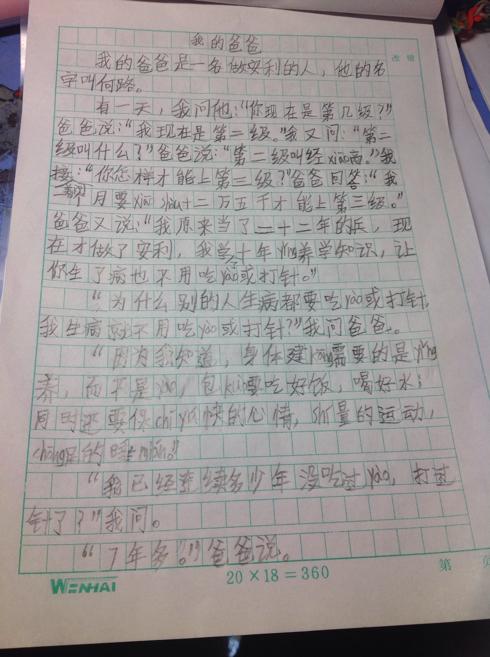 我的爸爸
我的爸爸是一名做安利的人，他的名
字叫何路。
有一天，我问他：“你现在是第几级？”
爸爸说：“我现在是第二级。”我又问：“第二
级叫什么？”爸爸说：“第二级叫经xiāo商。”我
接：“你怎样才能上第三级？”爸爸回答：“我
月要 十二万五千才能上第三级。”
爸爸又说：“我原来当了二十二年的兵，现
在才做了安利，我学十年yíng养学知识，让
你生了病也不用吃yào或打针。”
“为什么别的人生病都要吃yào或打针，
我生病就不用吃yào或打针？”我问爸爸。
“因为我知道，身体健kāng需要的是yíng
养，而不是yào，包kuò要吃好饭，喝好水；
同时还要保chí愉快的心情， 量的运动，
chōng足的睡mián。”
“我已经连续多少年没吃过yào，打过
针了？”我问。
“7年多。”爸爸说。
WENHAI
20×18=360
第 页